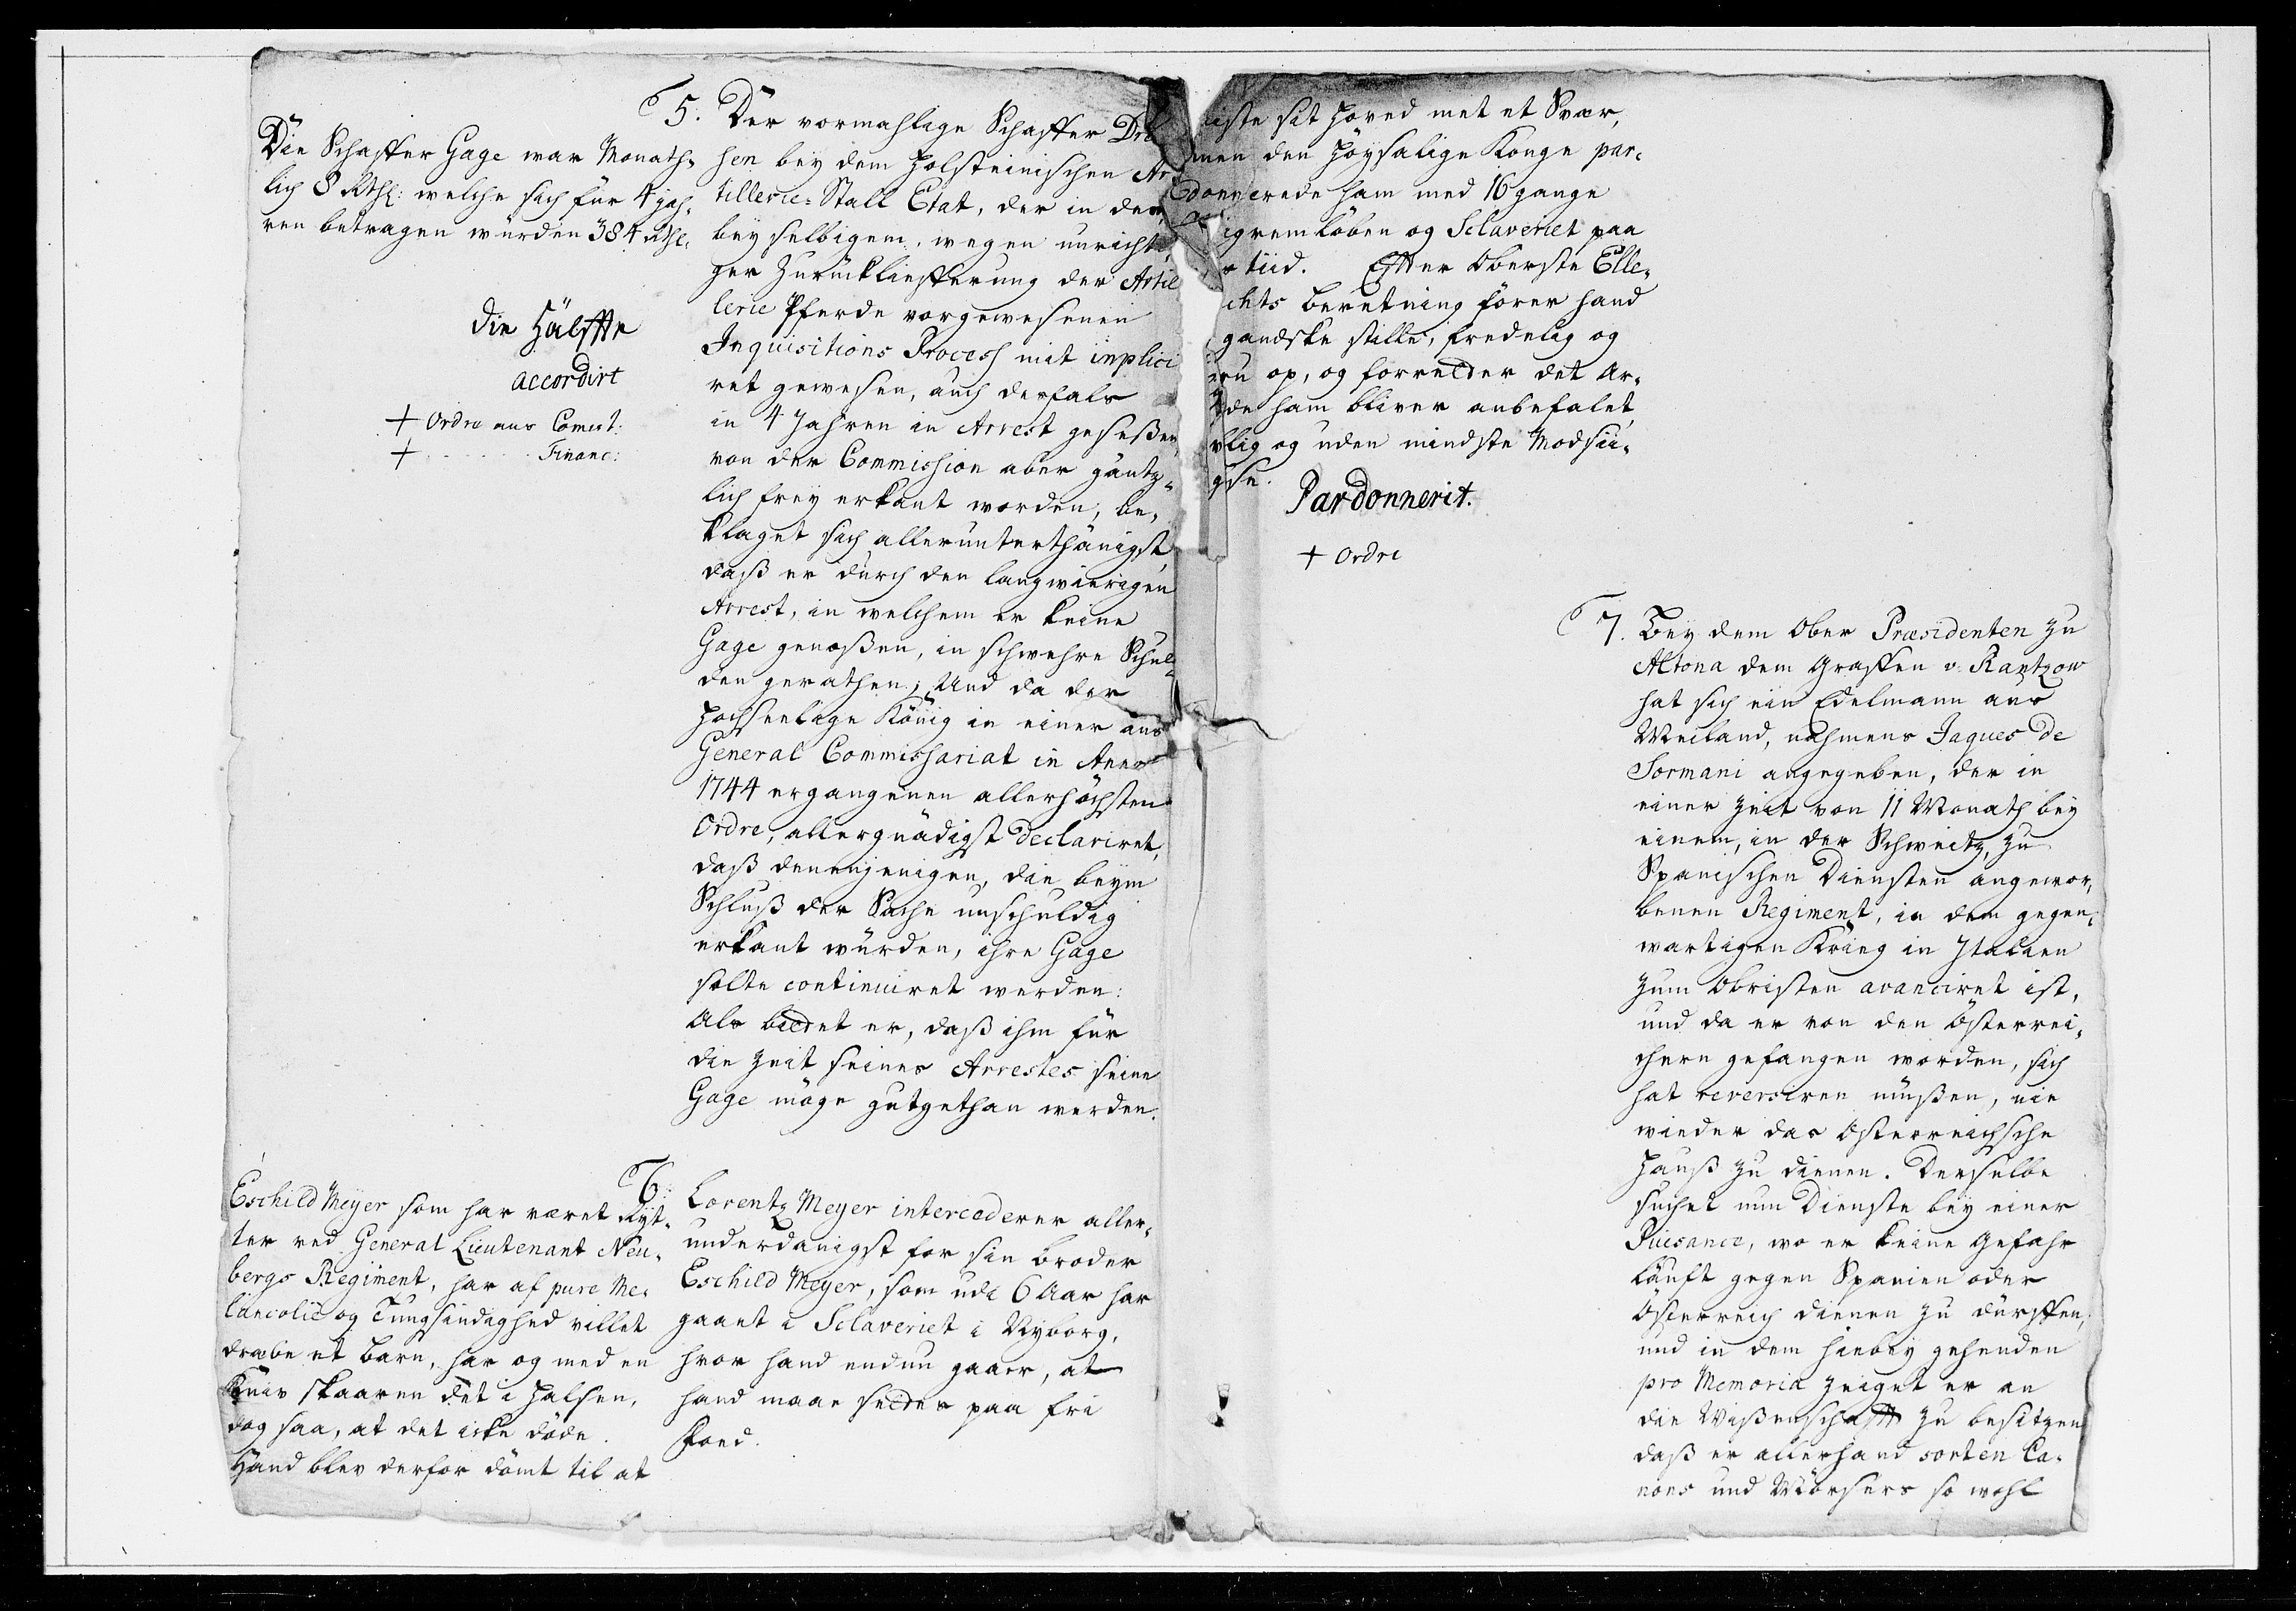 Die Schaffer Gage war Monath¬
lich 8 Rthl: welche sich für 4 jah¬
ren betragen würden 384 Rthl.
die Hälffte
accordirt
+ Ordre ans Comist:
+ ........ Financ:
5. Der vormahlige Schaffer
hen bey dem Holsteinischen Ar¬
tillerie-Stall Etat, der in dem,
bey selbigem, wegen unrichti¬
ger Zurücklieffterung der Artil
lerie Pferde vorgewesenen
Inquisitions Process mit inplici
ret gewesen, auch desfals
in 4 Jahren in Arrest geseßen,
von der Commission aber gäntz¬
lich frey erkant worden, be¬
klaget sich allerunterthänigst,
daß er durch den langwierigen
Arrest, in welchem er keine
Gage genoßen, in schwehre Schul¬
den gerathen; Und da der
Hochseelige König in einer ans
General Commissariat in Anno
1744 ergangenen allerhöchsten
Ordre, allergnädigst declariret,
daß denenjenigen, die beym
Schluß der Sache unschuldig
erkant würden, ihre Gage
solte continuiret werden:
Als bittet er, daß ihm für
die Zeit seines Arrestes seine
Gage möge gutgethan werden.
Eschild Meyer som har været Ryt¬
ter ved General Lieutenant Neu¬
bergs Regiment, har af pure Me¬
lancolie og Tungsindighed villet
dræbe et barn, har og med en
Kniv skaaren det i Halsen,
dog saa, at det icke döde.
Hand blev derfor dömt til at
6. Lorentz Meyer intercederer aller¬
underdanigst for sin broder
Eschild Meyer, som udi 6 Aar har
gaaet i Sclaveriet i Nyborg,
hvor hand endnu gaaer, at
hand maae settes paa fri
Foed.
miste sit Hoved met et Svær,
men den Höysalige Konge par¬
donnerede ham med 16 gange
löben og Sclaveriet paa
tiid. Efter Oberste Elle¬
chts beretning förer hand
gandske stille, fredelig og
op, og forretter det Ar¬
ham bliver anbefalet,
vlig og uden mindste Modsii¬
gse.
Pardonnerit.
+ Ordre
7. Bey dem Ober Præsidenten zu
Altona dem Graffen v. Rantzow
hat sich ein Edelmann aus
Meiland, nahmens Jaques de
Sormani angegeben, der in
einer Zeit von 11 Monath bey
einem, in der Schweitz, zu
Spanischen Diensten angewor¬
benen Regiment, in dem gegen¬
wartigen Krieg in Italien
zum Obristen avanciret ist,
und da er von den Österrei¬
chern gefangen worden, sich
hat reversiren müßen, nie
wieder das Österreichsche
Hauß zu dienen. Derselbe
suchet nun Dienste bey einer
Puisance, wo er keine Gefahr
läuft gegen Spanien oder
Österreich dienen zu dürffen,
und in dem hiebey gehenden
pro Memoria zeiget er an
die Wißenschafft zu besitzen
daß er allerhand sorten Ca¬
nons und Mörsers so wohl